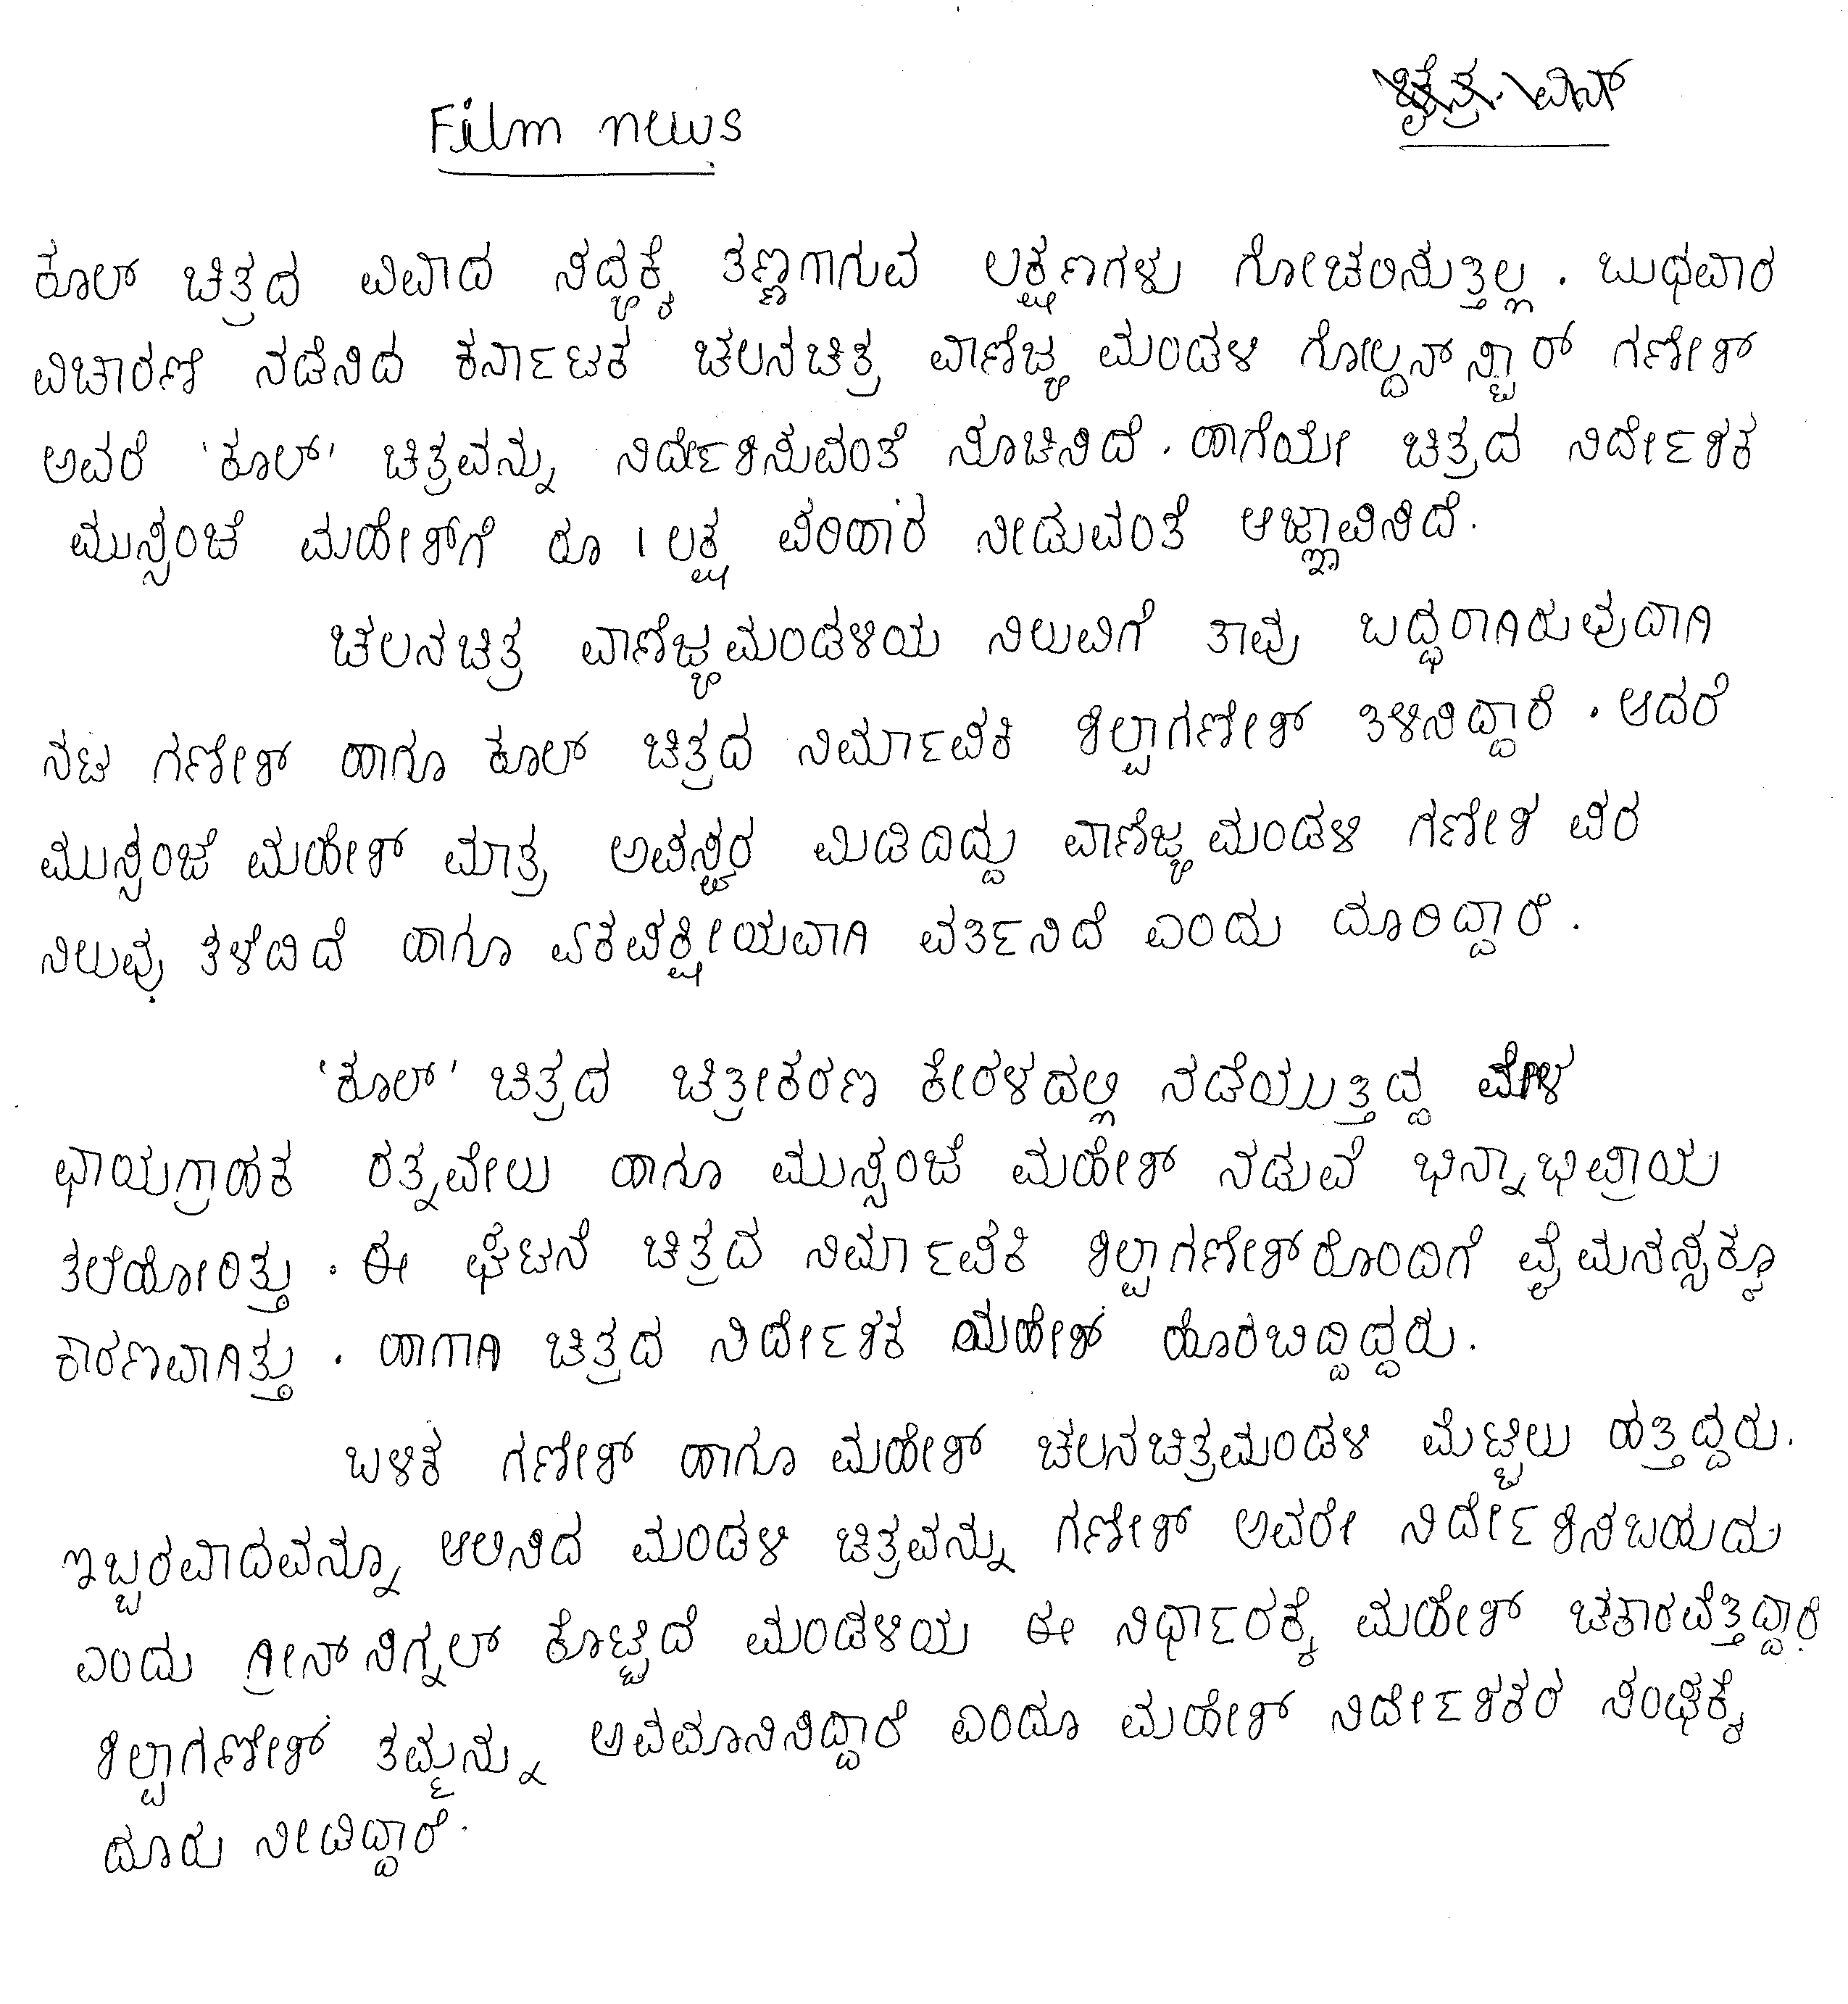 Film news
ಕೂಲ್ ಚಿತ್ರದ ವಿವಾದ ಸದ್ಯಕ್ಕೆ ತಣ್ಣಗಾಗುವ ಲಕ್ಷಣಗಳು ಗೋಚರಿಸುತ್ತಿಲ್ಲ. ಬುಧವಾರ
ವಿಚಾರಣೆ ನಡೆಸಿದ ಕರ್ನಾಟಕ ಚಲನಚಿತ್ರ ವಾಣಿಜ್ಯ ಮಂಡಳಿ ಗೋಲ್ಡನ್ ಸ್ಟಾರ್ ಗಣೇಶ್
ಅವರೆ 'ಕೂಲ್' ಚಿತ್ರವನ್ನು ನಿರ್ದೇಶಿಸುವಂತೆ ಸೂಚಿಸಿದೆ. ಹಾಗೆಯೇ ಚಿತ್ರದ ನಿರ್ದೇಶಕ
ಮುಸ್ಸಂಜೆ ಮಹೇಶ್‌ಗೆ ರೂ 1 ಲಕ್ಷ ಪರಿಹಾರ ನೀಡುವಂತೆ ಆಜ್ಞಾಪಿಸಿದೆ.
ಚಲನಚಿತ್ರ ವಾಣಿಜ್ಯಮಂಡಳಿಯ ನಿಲುವಿಗೆ ತಾವು ಬದ್ಧರಾಗಿರುವುದಾಗಿ
ನಟ ಗಣೇಶ್ ಹಾಗೂ ಕೂಲ್ ಚಿತ್ರದ ನಿರ್ಮಾಪಕಿ ಶಿಲ್ಪಾಗಣೇಶ್ ತಿಳಿಸಿದ್ದಾರೆ. ಆದರೆ
ಮುಸ್ಸಂಜೆ ಮಹೇಶ್ ಮಾತ್ರ ಅಪಸ್ವರ ಮಿಡಿದಿದ್ದು ವಾಣಿಜ್ಯ ಮಂಡಳಿ ಗಣೇಶ ಪರ
ನಿಲುವು ತಳೆದಿದೆ ಹಾಗೂ ಏಕಪಕ್ಷೀಯವಾಗಿ ವರ್ತಿಸಿದೆ ಎಂದು ದೂರಿದ್ದಾರೆ.
'ಕೂಲ್' ಚಿತ್ರದ ಚಿತ್ರೀಕರಣ ಕೇರಳದಲ್ಲಿ ನಡೆಯುತ್ತಿದ್ದ ವೇಳೆ
ಛಾಯಗ್ರಾಹಕ ರತ್ನವೇಲು ಹಾಗೂ ಮುಸ್ಸಂಜೆ ಮಹೇಶ್ ನಡುವೆ ಭಿನ್ನಾಭಿಪ್ರಾಯ
ತಲೆದೋರಿತ್ತು. ಈ ಘಟನೆ ಚಿತ್ರದ ನಿರ್ಮಾಪಕಿ ಶಿಲ್ಪಾಗಣೇಶ್‌ರೊಂದಿಗೆ ವೈಮನಸ್ಸಕ್ಕೂ
ಕಾರಣವಾಗಿತ್ತು. ಹಾಗಾಗಿ ಚಿತ್ರದ ನಿರ್ದೇಶಕ ಮಹೇಶ್ ಹೊರಬಿದ್ದಿದ್ದರು.
ಬಳಿಕ ಗಣೇಶ್ ಹಾಗೂ ಮಹೇಶ್ ಚಲನಚಿತ್ರಮಂಡಳಿ ಮೆಟ್ಟಿಲು ಹತ್ತಿದ್ದರು.
ಇಬ್ಬರವಾದವನ್ನೂ ಆಲಿಸಿದ ಮಂಡಳಿ ಚಿತ್ರವನ್ನು ಗಣೇಶ್ ಅವರೇ ನಿರ್ದೇಶಿಸಬಹುದು
ಎಂದು ಗ್ರೀನ್ ಸಿಗ್ನಲ್ ಕೊಟ್ಟಿದೆ ಮಂಡಳಿಯ ಈ ನಿರ್ಧಾರಕ್ಕೆ ಮಹೇಶ್ ಚಕಾರವೆತ್ತಿದ್ದಾರೆ
ಶಿಲ್ಪಾಗಣೇಶ್ ತಮ್ಮನ್ನು ಅವಮಾನಿಸಿದ್ದಾರೆ ಎಂದೂ ಮಹೇಶ್ ನಿರ್ದೇಶಕರ ಸಂಘಕ್ಕೆ
ದೂರು ನೀಡಿದ್ದಾರೆ.